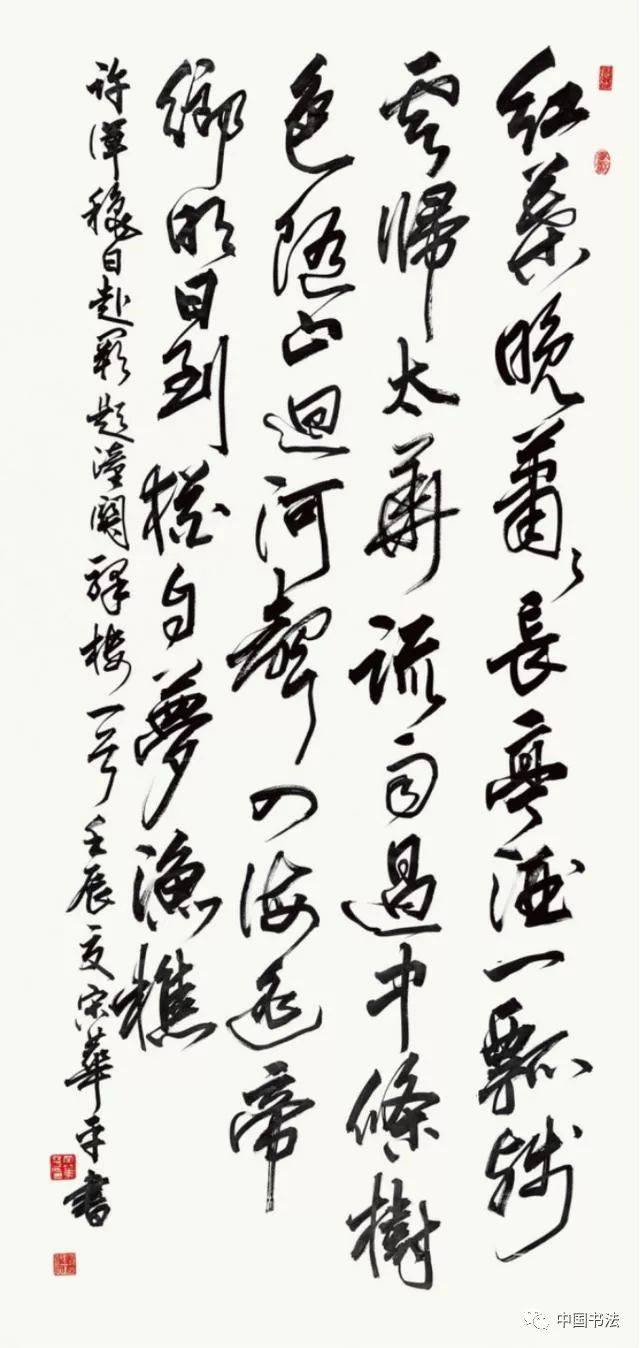 紅葉晚蕭〻長亭酒一瓢殘
雲歸太華疏雨過中條樹
色隨山迴河聲入海遥帝
鄉明日到猶自夢漁樵
許渾秋日赴闕題潼關驛樓一首 壬辰夏宋華平書
中国书法